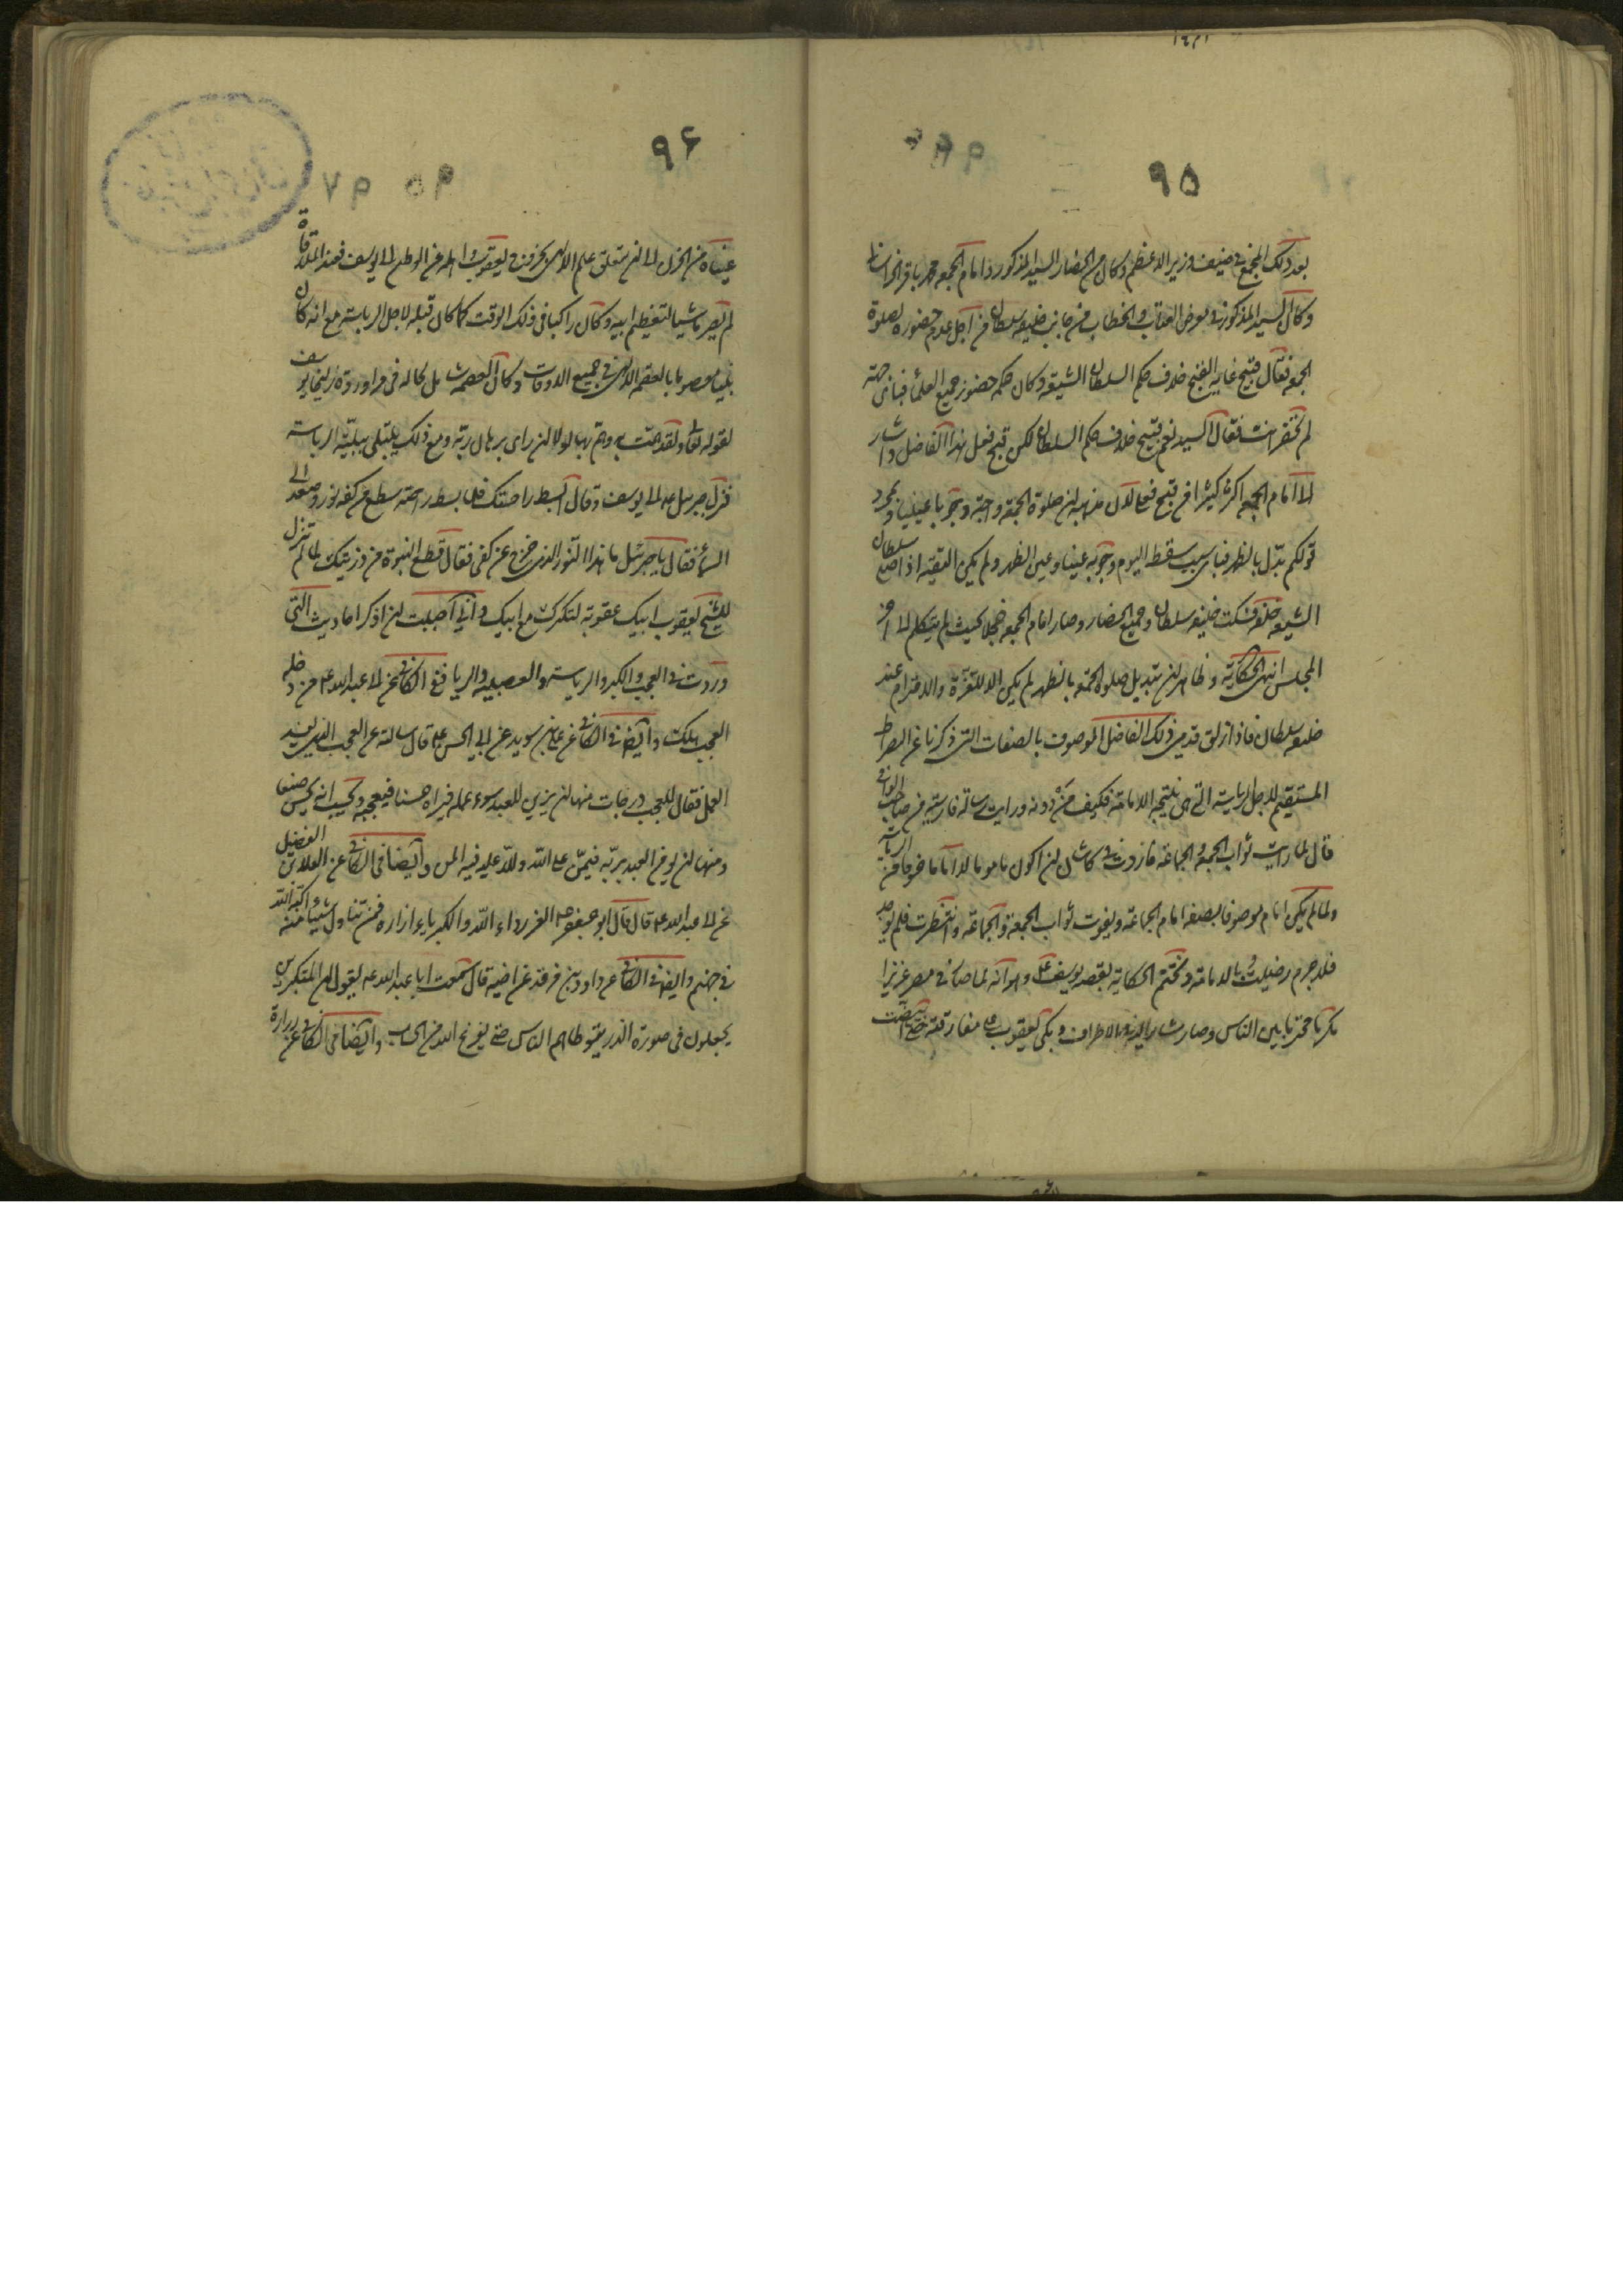 ٩٥
بعد ذلك المجمع في ضيف وزير الاعظم وكان من الحضار السيد المذكور وامام الجمعه محمد باقر الخراساني
وكان السيد المذكور في معرض العتاب والخطاب من جانب خليفه سلطان من اجل عدم حضوره لصلوة
الجمعه فقال قبيح غاية القبح خلاف حكم السلطان الشيعة وكان حكمه حضور جميع العلماء فباي جهته
لم تحضر انت فقال السيد نعم قبيح خلاف حكم السلطان لكن قبح فعل هذا الفاضل واشار
الى امام الجمعه اكثر كثيرا من قبح فعلي لان مذهبه ان صلوة الجمعه واجبة وجوبا عينيا وبمجرد
قولكم بدّل بالظهر فباي سبب سقط اليوم وجوبه عينا وعين الظهر ولم يكن التقيه اذ سلطان
الشيعه فسكت خليفه سلطان وجميع الحضار وصار امام الجمعه خجلا بحيث لم يتكلم الى اخر
المجلس انتهى الحكاية وظاهر ان تبديل صلوة الجمعه بالظهر لم يكن الا للتعزة والاحترام عند
خليفه سلطان فاذا زلق قدمي ذلك الفاضل الموصوف بالصفات التي ذكرنا عن الصراط
المستقيم لاجل الرياسة التي هي نتيجه الامامة فكيف من دونه ورايت رسالة فارسية من صاحب الوافي
قال لما رايت ثواب الجمعه والجماعة ان اكون ماموما لا اماما خوفا من الرياسة
ولما لم يكن امام موصوفا بصفه امام الجماعة ويفوت ثواب الجمعة والجماعة وانتظرت فلم يوجد
فلا جرم رضيت بالامامة ونختم الحكاية بقصه يوسف ع وهو انه لما صار في مصر عزيزا
مكرّما محترما بين الناس وصار مشارا اليه الاطراف وبكى يعقوب ع مفارقته حتى ابيضّت
٩٦
عيناه من الحزن الى ان يتعلق علم الالهي بخروج يعقوب واهله من الوطن الى يوسف فعند الملاقاة
لم يصر ماشيا لتعظيم ابيه وكان راكبا في ذلك الوقت كما كان قبله لاجل الرياسة مع انه كان
نبيا معصوما بالعصمة الالهي في جميع الاوقات وكان العصمة كماله في مراودة زليخا يوسف
لقوله تعالى ولقد همّت به وهمّ بها لولا ان راى برهان ربّه ومع ذلك يبتلى ببليّة الرياسة
فنزل جبرئيل ع الى يوسف وقال ابسط راحتك فلما بسط راحته سطع من كفه نور وصعد الى
السماء فقال يا جبرئيل ما هذا النّور الذي خرج عن كفي فقال قطع النبوة من ذريتك لما لم تنزل
للشيخ يعقوب ابيك عقوبة لتكبرك مع ابيك واني احببت ان اذكر احاديث التي
وردت في العجب والكبر والرياسة والعصبية والريا ففي الكافي عن ابي عبد الله ع من دخله
العجب هلك وايضا في الكافي عن علي بن سويد عن ابي الحسن ع قال سالته عن العجب الذي يفسد
العمل فقال للعجب درجات منها ان يزين للعبد سوء عمله فيراه حسنا فيعجبه ويحسب انه يحسن صنعا
ومنها ان يؤمن العبد بربّه فيمنّ على الله ولله عليه فيه المن وايضا في الكافي عن العلا بن الفضيل
عن ابي عبد الله ع قال قال ابو جعفر ع العز رداء الله والكبرياء ازاره فمن تناول شيئا منه اكبّه الله
في جهنم وايضا في الكافي عن داود بن فرقد عن اخيه قال سمعت ابا عبد الله ع يقول ان المتكبرين
يجعلون في صورة الذر يتوطاهم الناس حتى يفرغ الله من الحساب وايضا في الكافي عن زرارة